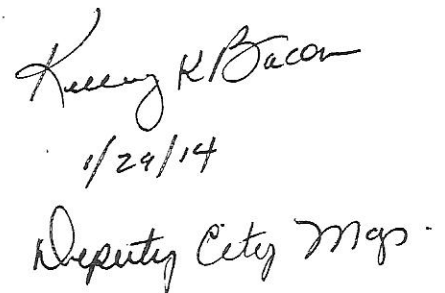 Kelley K Bacon
1/29/14
Deputy City Mgr.